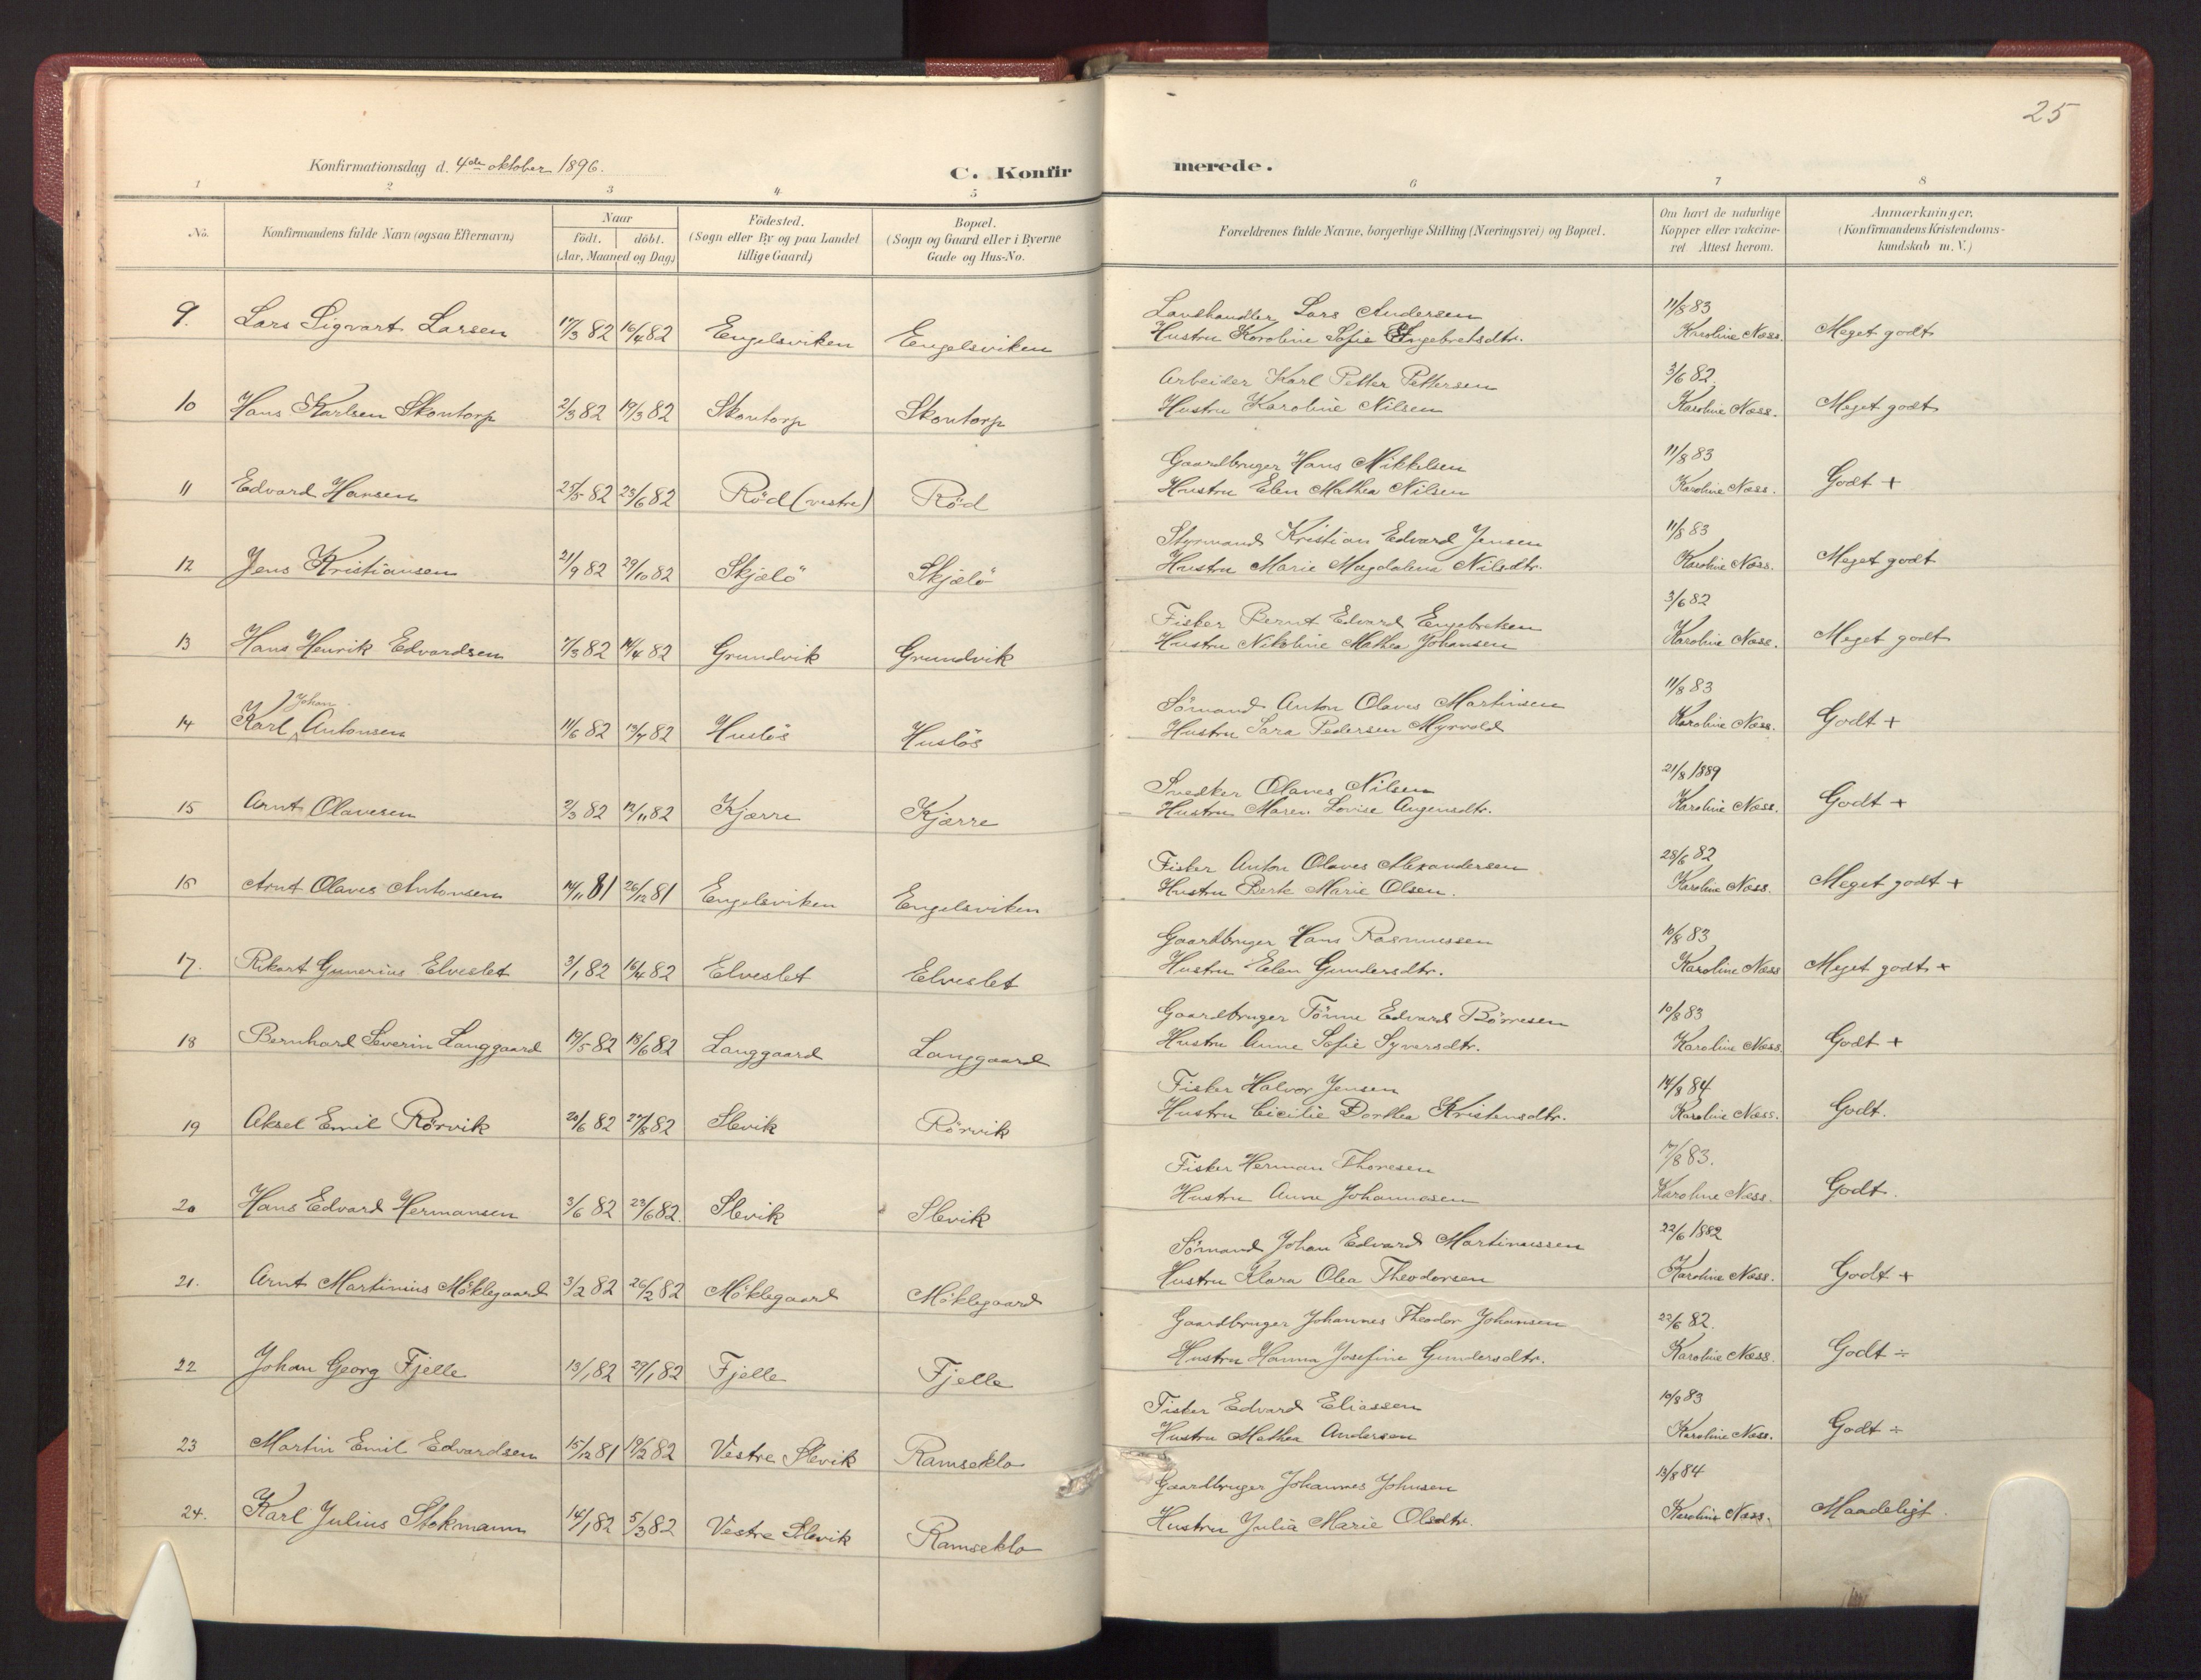 25
Konfirmationsdag d. 4de oktober 1896.
C. Konfirmerede.
1 2 3 4 5 6 7 8
No.
Konfirmandens fulde Navn (ogsaa Efternavn)
Naar
födt. döbt.
(Aar, Maaned og Dag.)
Födested.
(Sogn eller By og paa Landet
tillige Gaard)
Bopæl.
(Sogn og Gaard eller i Byerne
Gade og Hus-No.
Forældrenes fulde Navne, borgerlige Stilling (Næringsvei) og Bopæl.
Om havt de naturlige
Kopper eller vakcine-
ret. Attest herom.
Anmærkninger.
(Konfirmandens Kristendoms-
kundskab m. V.)
9. Lars Sigvart Larsen 17/3 82 16/4 82 Engelsviken Engelsviken
Lars Andersen 11/8 83
Hustru Karoline Sofie Engebretsdtr. Karoline Næss. Meget godt
10 Hans Karlsen Skontorp 2/3 82 19/3 82 Skontorp Skontorp
Arbeider Karl Petter Pettersen 3/6 82.
Hustru Karoline Nilsen Karoline Næss. Meget godt
11 Edvard Hansen 25/5 82 23/6 82 Röd (vestre) Röd
Gaardbruger Hans Mikkelsen 11/8 83
Hustru Elen Mathea Nilsen Karoline Næss. Godt +
12 Jens Kristiansen 21/9 82 29/10 82 Skjælö Skjælö
Styrmand Kristian Edvard Jensen 11/8 83
Hustru Marie Magdalena Nilsdtr. Karoline Næss. Meget godt
13 Hans Henrik Edvardsen 7/3 82 10/4 82 Grundvik Grundvik
Fisker Bernt Edvard Engebretsen 3/6 82
Hustru Nikoline Mathea Johansen Karoline Næss. Meget godt
Johan
14 Karl Antonsen 11/6 82 82 Huslös Huslös
Sömand Anton Olaves Martinsen 11/8 83
Hustru Sara Pedersen Myrvold Karoline Næss. Godt +
15 Arnt Olavesen 2/3 82 12/11 82 Kjærre Kjærre
Snedker Olaves Nilsen 21/8 1889
Hustru Maren Lovise Augensdtr. Karoline Næss. Godt +
16 Arnt Olaves Antonsen 14/11 81 26/12 81 Engelsviken Engelsviken
Fisker Anton Olaves Alexandersen 28/6 82
Hustru Berte Marie Olsen. Karoline Næss. Meget godt +
17. Rikart Gunerius Elveslet 3/1 82 16/4 82 Elveslet Elveslet
Gaardbruger Hans Rasmussen 10/8 83
Hustru Elen Gundersdtr. Karoline Næss Meget godt +
18 Bernhard Severin Langgaard 19/5 82 18/6 82 Langgaard Langgaard
Gaardbruger Tönne Edvard Börresen 10/8 83
Hustru Anne Sofie Syversdtr. Karoline Næss. Godt +
19 Aksel Emil Rörvik 20/6 82 27/8 82 Slevik Rörvik
Fisker Halvor Jensen 14/8 84
Hustru Cicilie Dorthea Kristensdtr. Karoline Næss. Godt.
20 Hans Edvard Hermansen 3/6 82 23/6 82. Slevik Slevik
Fisker Herman Thoresen 17/8 83.
Hustru Anne Johannesen Karoline Næss. Godt.
21. Arnt Martinius Möklegaard 3/2 82 26/2 82 Möklegaard Möklegaard
Sömand Johan Edvard Martinussen 22/6 1882
Hustru Klara Olea Theodorsen Karoline Næss. Godt +
22 Johan Georg Fjelle 13/1 82 29/1 82 Fjelle Fjelle
Gaardbruger Johannes Theodor Johansen 22/6 82.
Hustru Hanna Josefine Gundersdtr. Karoline Næss. Godt ÷
23 Martin Emil Edvardsen 15/12 81 19/2 82 Vestre Slevik Ramseklo
Fisker Edvard Eliassen 10/8 83
Hustru Mathea Andersen Karoline Næss. Godt ÷
24. Karl Julius Stokmann 14/1 82 5/3 82 Vestre Slevik Ramseklo
Gaardbruger Johannes Johnsen 13/8 84
Hustru Julia Marie Olsdtr. Karoline Næss. Maadeligt.